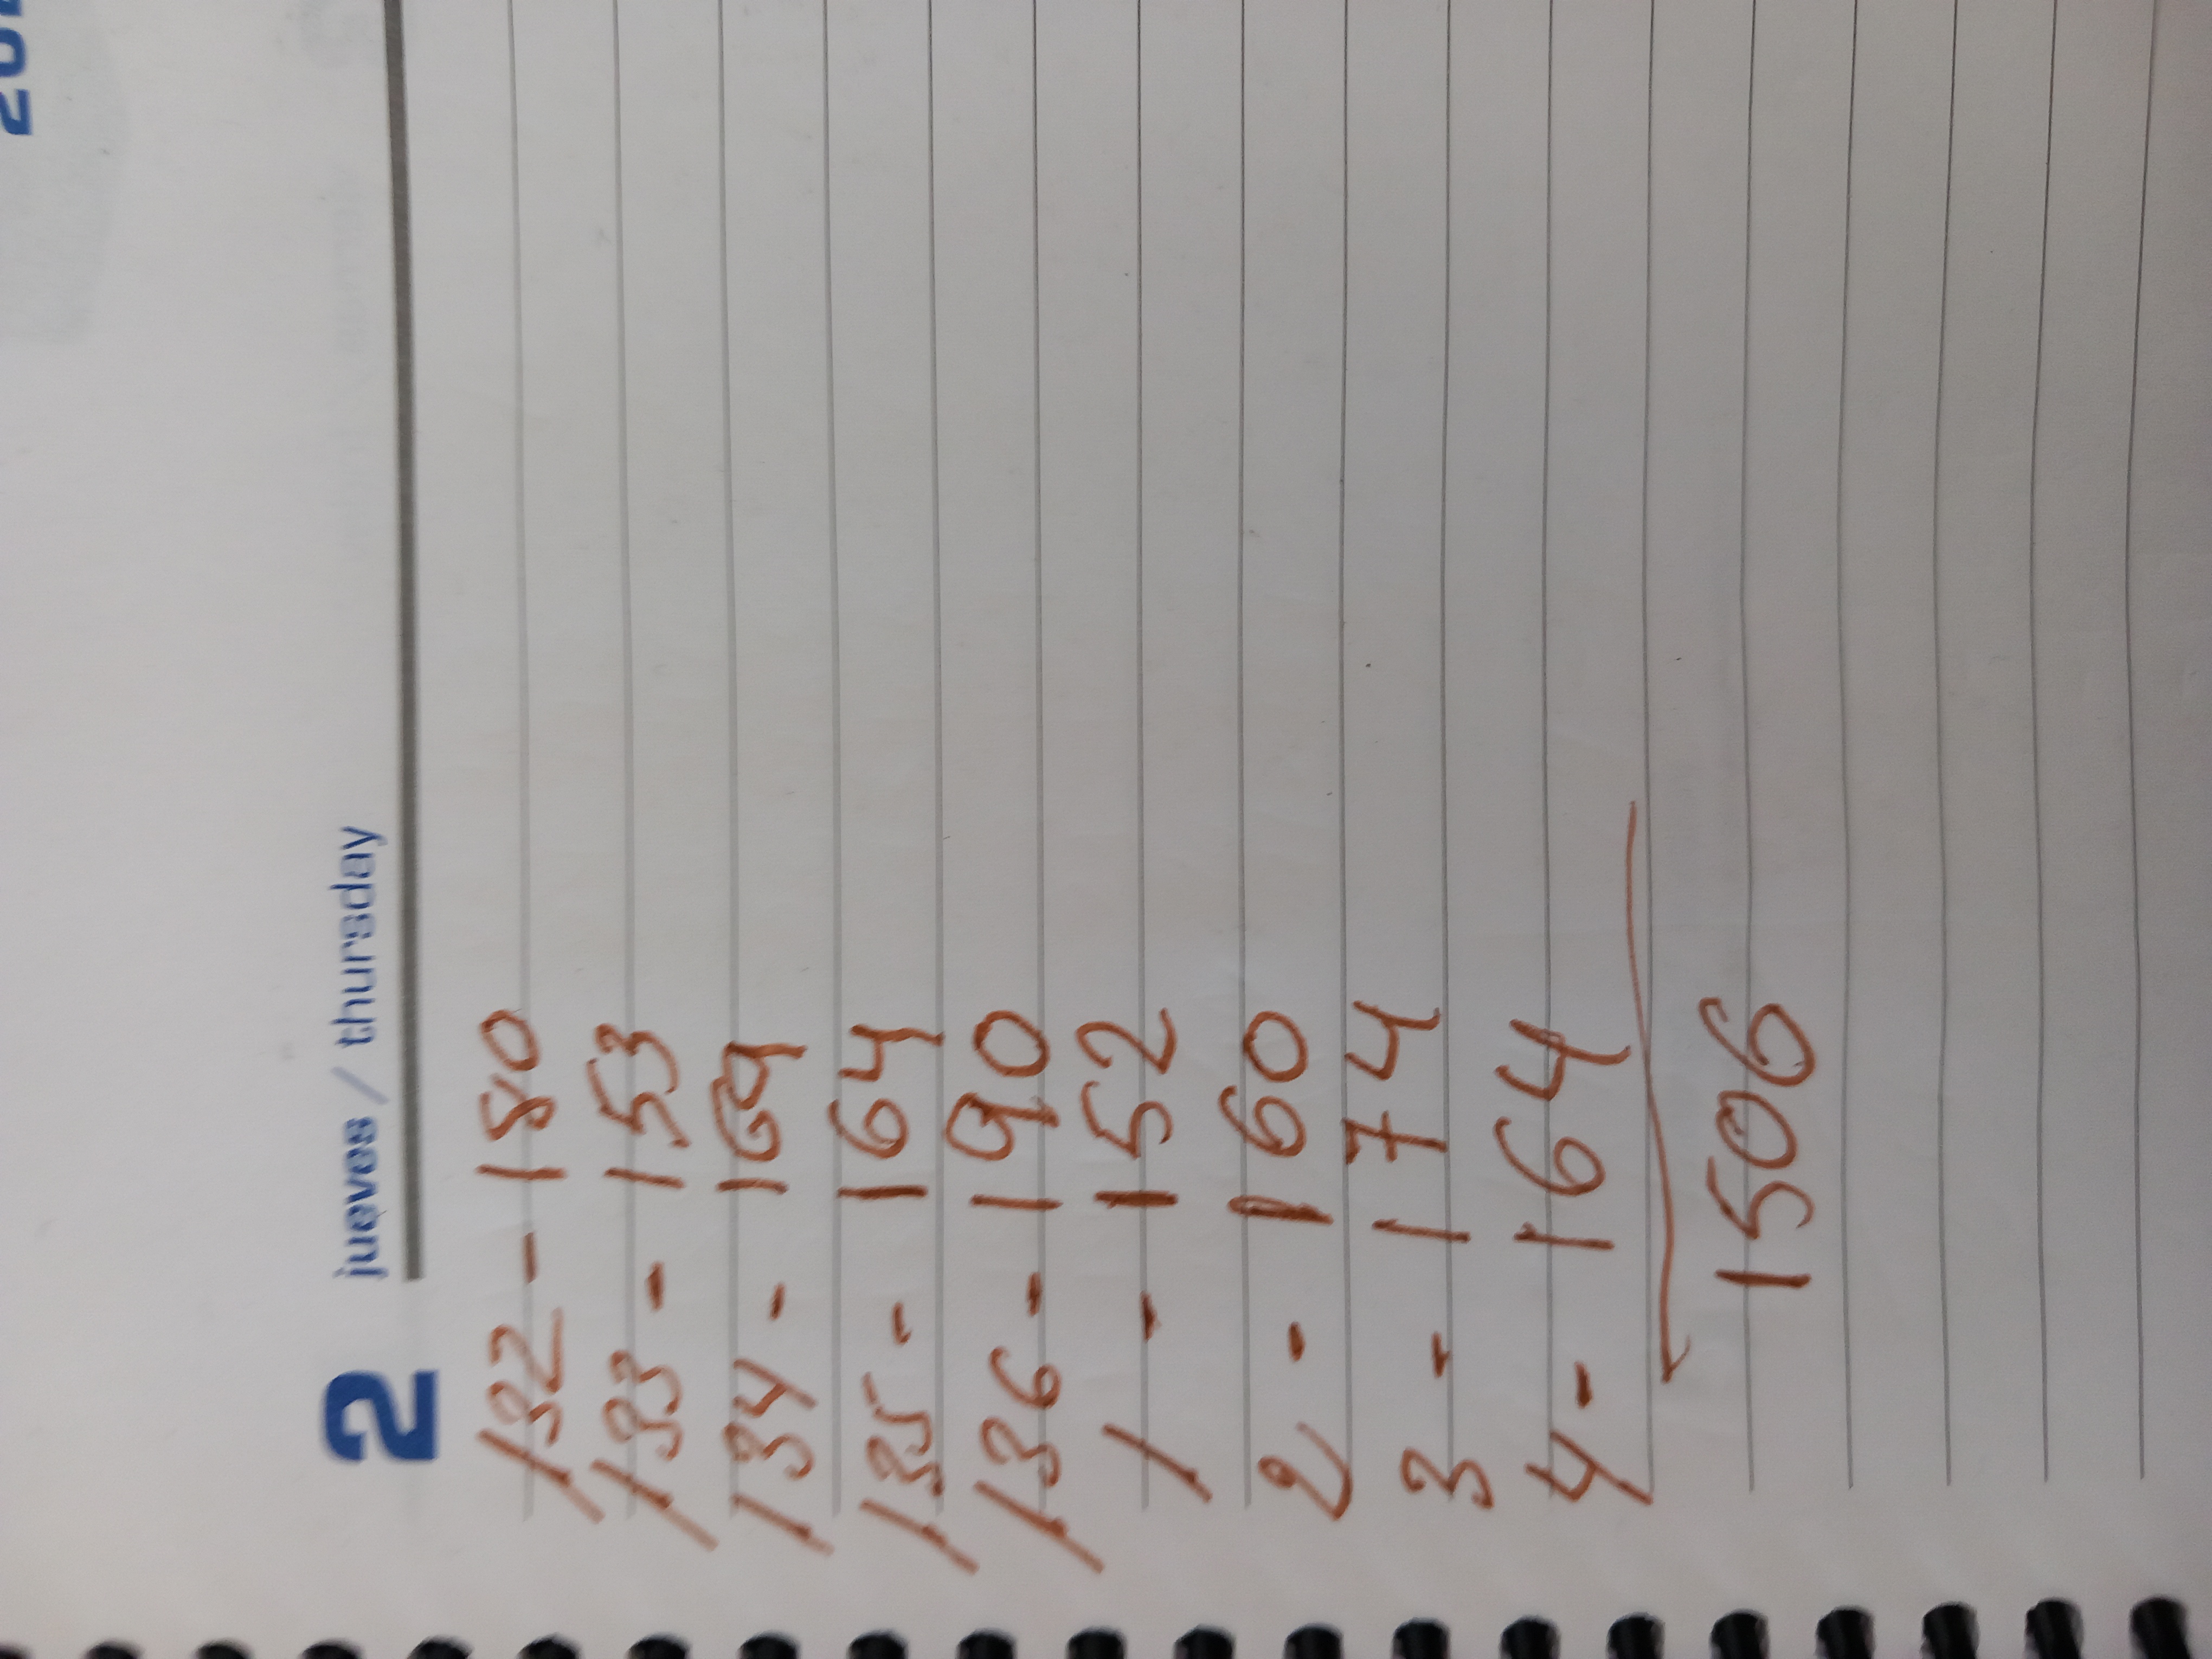 2 jueves / thursday
132 - 180
133 - 153
134 - 169
135 - 164
136 - 190
1 - 152
2 - 160
3 - 174
4 - 164
1506